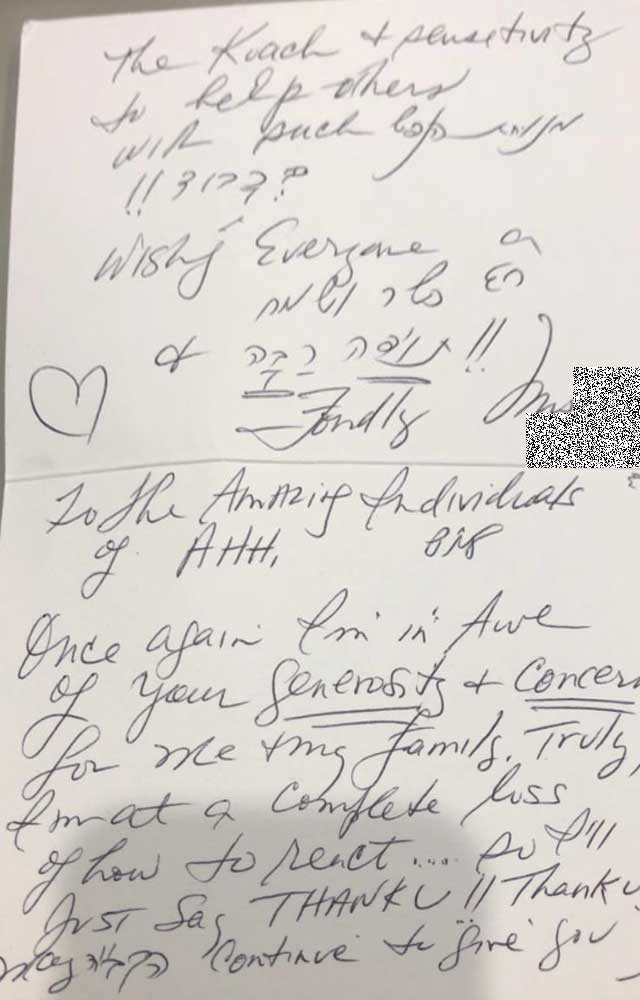 The Koach + sensitivity
to help others
WITH such
!!
Wishing Everyone a
חג כשר ושמח
& !!
Fondly
To the Amazing Individuals
of AHH,
Once again I'm in Awe
of your generosity + concern
for me + my family. Truly,
I'm at a complete loss
of how to react .... so I'll
JUST Say THANK U !! Thank U
may הקב"ה continue to give you